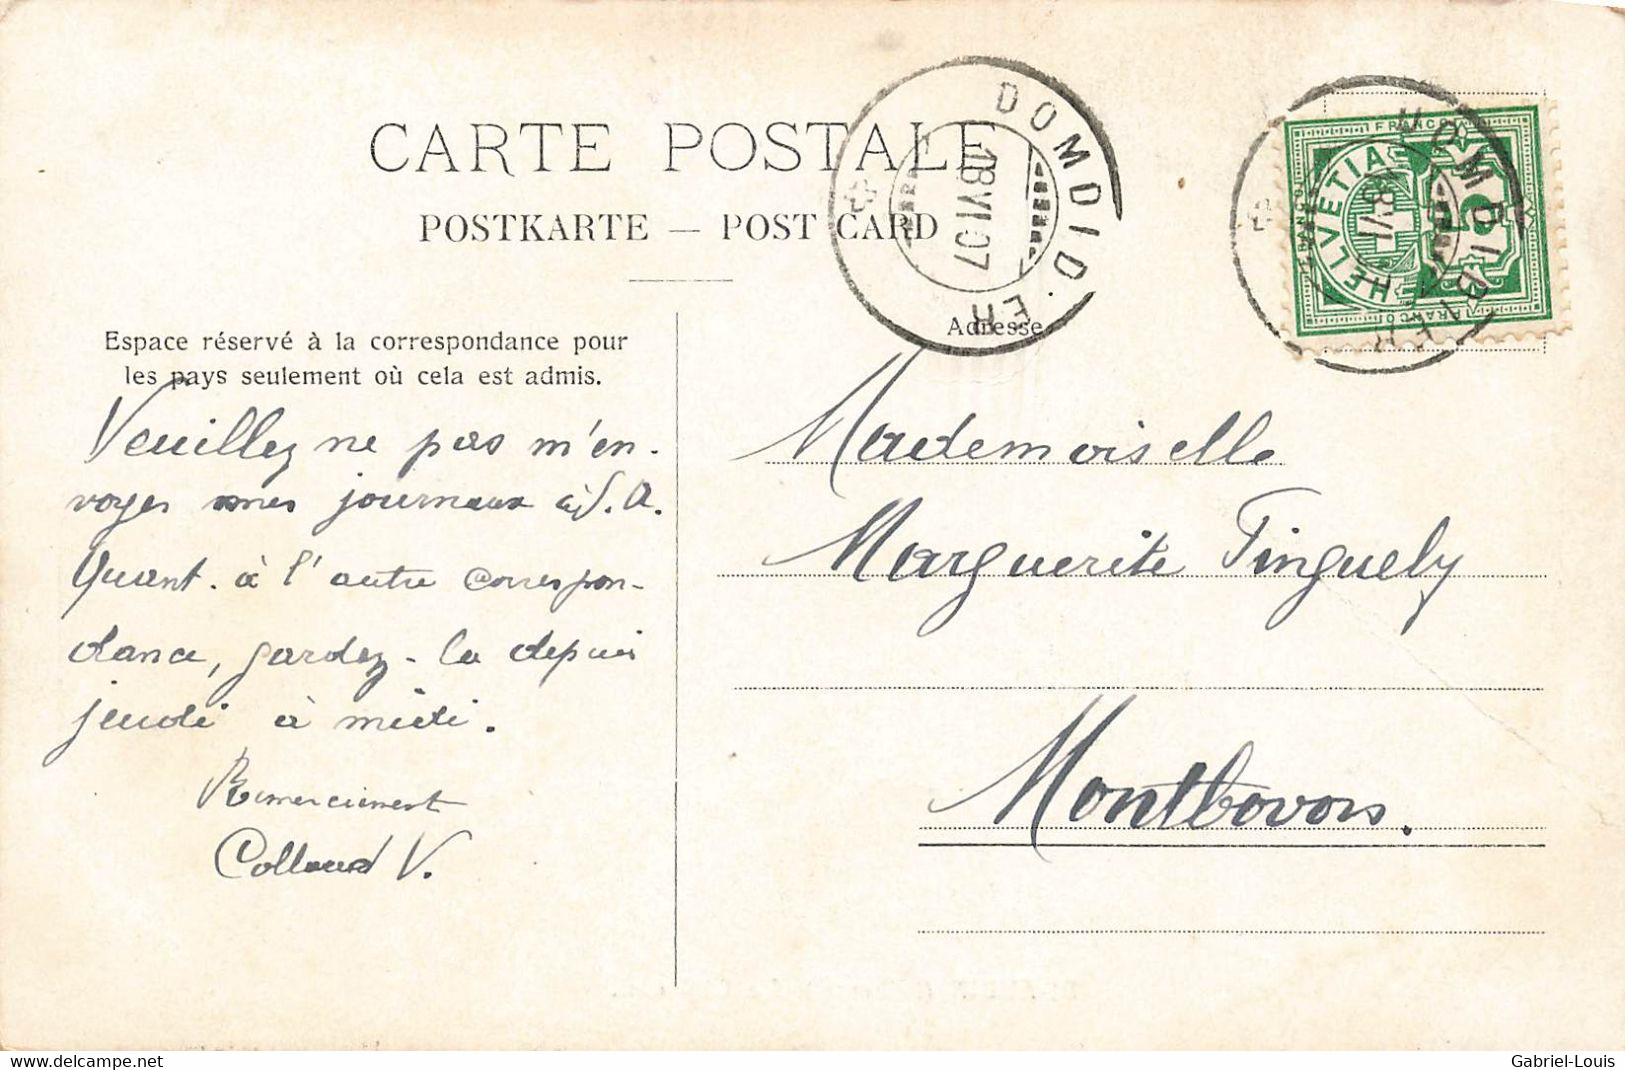 CARTE POSTALE
POSTKARTE — POST CARD
DOMDID·ER
18 VI 07
DOMDIDIER
18 VI
FRANCO
HELVETIA
5
Espace réservé à la correspondance pour
les pays seulement où cela est admis.
Adresse
Veuillez ne pas m'en-
voyer mes journaux à S. A.
Quant à l'autre correspon-
dance, gardez-la depuis
jeudi à midi.
Remerciement
Colloud V.
Mademoiselle
Marguerite Pinguely
Montbovon.
www.delcampe.net
Gabriel-Louis